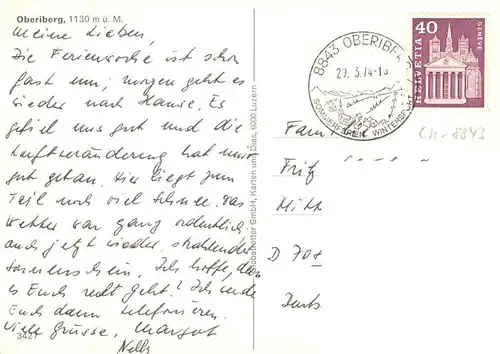 Oberiberg, 1130 m ü. M.
Meine Lieben,
Die Ferienwoche ist schon
fast um, morgen geht es
wieder nach Hause. Es
gefiel uns gut und die
Luftveränderung hat uns
gut getan. Hier liegt zum
Teil noch viel Schnee. Das
Wetter war ganz ordentlich
auch jetzt wieder strahlender
Sonnenschein. Ich hoffe, dass
es Euch recht geht! Ich werde
Euch dann telefonieren.
Viele Grüsse, Margot
Nelly
3427
GmbH, Karten und Dias, 6000 Luzern
8843 OBERIBE
29. 3. 74-1
SOMMERFERIEN WINTERSPORT
40
HELVETIA
GENÈVE
CH-8843
Fam
Fritz
Mitt
D 708